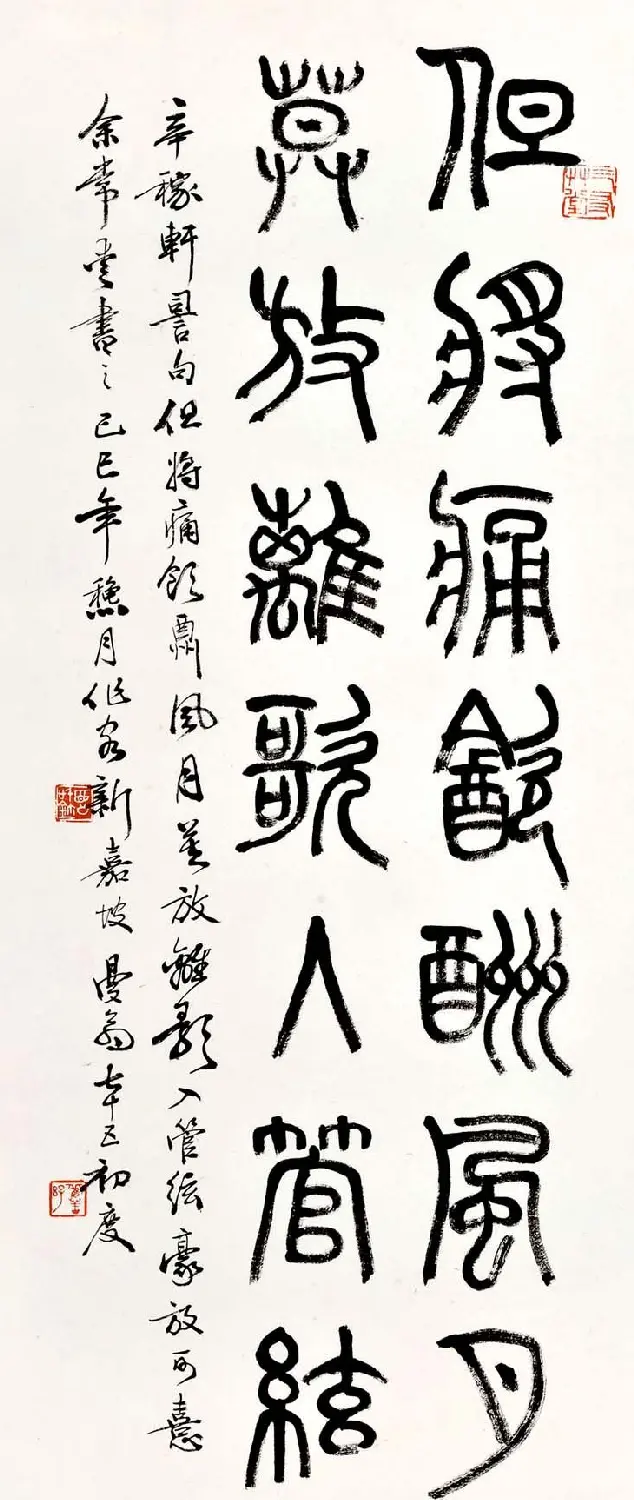 但將痛飲酬風月
莫放離歌入管絃
辛稼軒詞句但將痛飲酬風月莫放離歌入管絃豪放可憙
余常書之己巳年穐月作客新嘉坡曼翁七十五初度